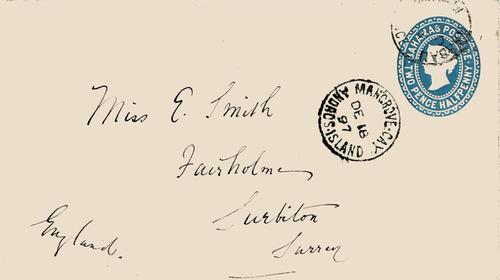 BAHAMAS POSTAGE
TWO PENCE HALFPENNY
MANGROVE-CAY
DE 18
97
ANDROS-ISLAND
Miss E. Smith
Fairholme
Surbiton
Surrey
England.